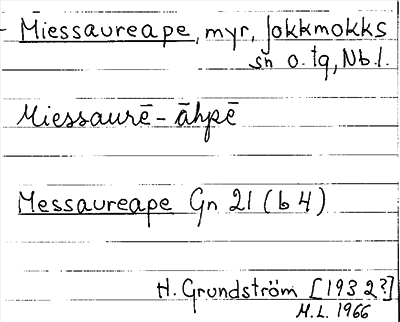 - Miessaureape, myr, Jokkmokks
sn o. tg, Nb.l.
Miessaurē-āhpē
Messaureape Gn 21 (b4)
H. Grundström [1932?]
M.L. 1966